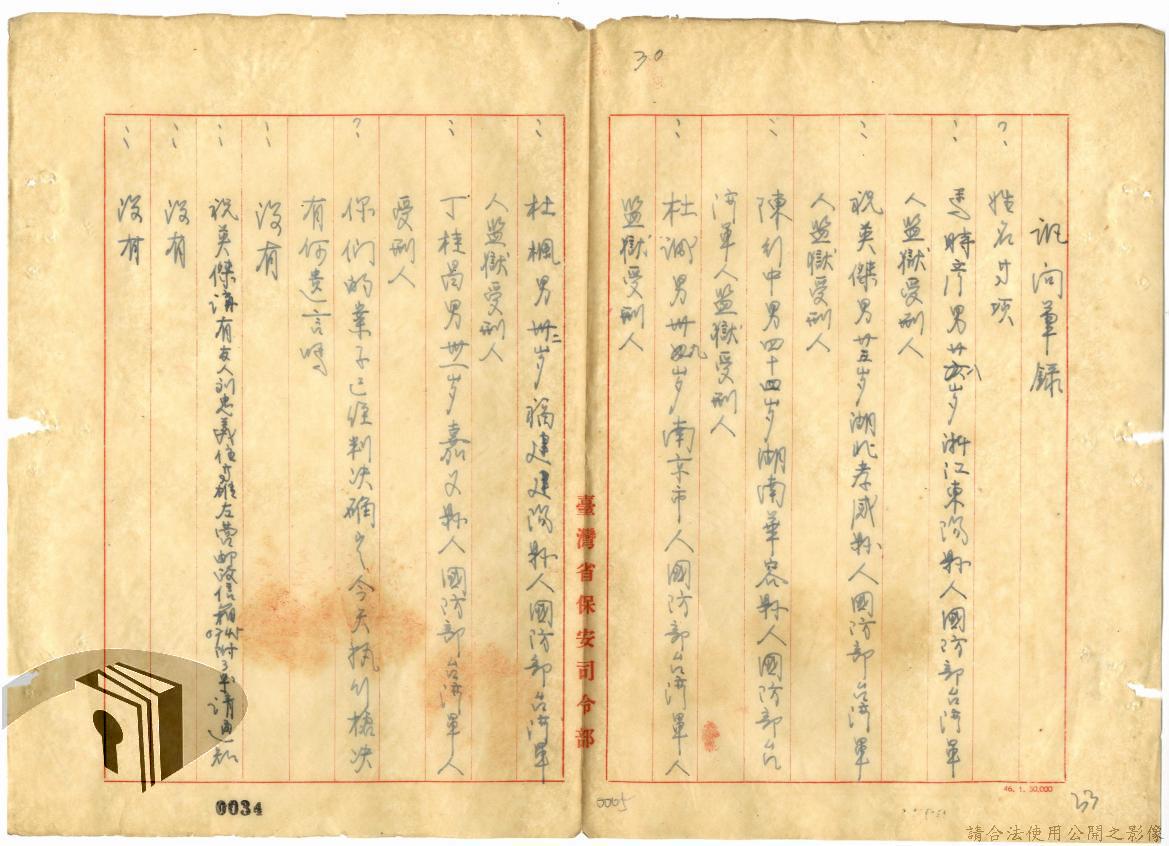 30
訊问筆録
? 姓名等項
: 馬時彦男廿八岁浙江東陽縣人國防部台湾軍
人監獄受刑人
: 祝英傑男廿五岁湖北孝感縣人國防部台湾軍
人監獄受刑人
: 陳行中男四十四岁湖南華容縣人國防部台
湾軍人監獄受刑人
: 杜 男卅九岁南京市人國防部台湾軍人
監獄受刑人
46. 1. 50,000
33
0065
臺灣省保安司令部
: 杜楓男卅二岁福建建陽縣人國防部台湾軍
人監獄受刑人
: 丁桂昌男卅一岁嘉义縣人國防部台湾軍人
受刑人
? 你们的業子已经判决确定今天执行槍决
有何遺言吗
: 没有
: 祝英傑講有友人刘忠義住高雄左营邮政信箱 附3号請通知
: 没有
: 没有
0034
請合法使用公開之影像